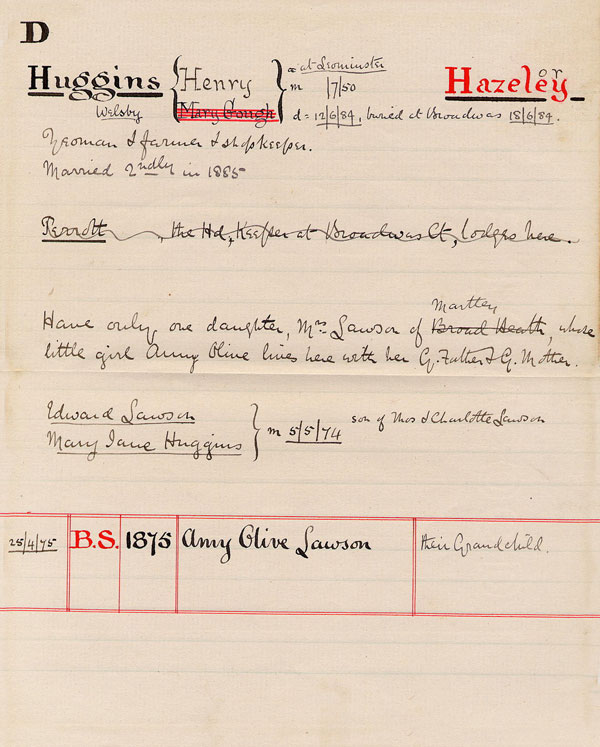 D
Huggins { Henry } at Leominster m /7/50 Hazeley or
Welsby Mary Gough d = 12/6/84, buried at Broadwas 18/6/84.
Yeoman & farmer & shopkeeper.
Married 2ndly in 1885
Perrott, the Hd, Keeper at Broadwas Ct, lodges here.
Martley
Have only one daughter, Mrs Lawson of Broad Heath, whose
little girl Amy Olive lives here with her G. Father & G. Mother.
Edward Lawson } m 5/5/74 son of Thos & Charlotte Lawson
Mary Jane Huggins
25/4/75 B.S. 1875 Amy Olive Lawson their Grandchild.